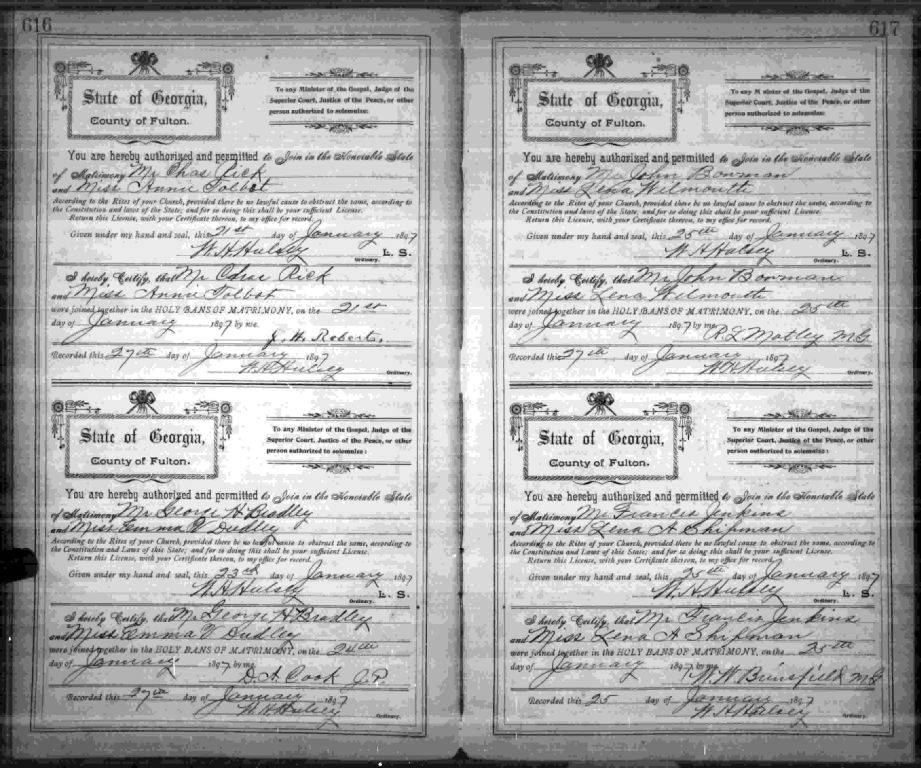 616
State of Georgia,
County of Fulton.
To any Minister of the Gospel, Judge of the
Superior Court, Justice of the Peace, or other
person authorized to solemnize:
You are hereby authorized and permitted to Join in the Honorable State
of Matrimony Mr Chas Rick
and Miss Annie Tolbot
According to the Rites of your Church, provided there be no lawful cause to obstruct the same, according to
the Constitution and laws of the State; and for so doing this shall be your sufficient License.
Return this License, with your Certificate thereon, to my office for record.
Given under my hand and seal, this 21st day of January 1897
W.H.Hulsey L. S.
Ordinary.
I hereby Certify, that Mr Chas Rick
and Miss Annie Tolbot
were joined together in the HOLY BANS OF MATRIMONY, on the 21st
day of January 1897 by me.
J. W. Roberts,
Recorded this 27th day of January 1897
W.H.Hulsey Ordinary.
State of Georgia,
County of Fulton.
To any Minister of the Gospel, Judge of the
Superior Court, Justice of the Peace, or other
person authorized to solemnize:
You are hereby authorized and permitted to Join in the Honorable State
of Matrimony Mr George H Bradley
and Miss Emma V Dudley
According to the Rites of your Church, provided there be no lawful cause to obstruct the same, according to
the Constitution and Laws of this State; and for so doing this shall be your sufficient License.
Return this License, with your Certificate thereon, to my office for record.
Given under my hand and seal, this 23rd day of January 1897
W.H.Hulsey L. S.
Ordinary.
I hereby Certify, that Mr George H Bradley
and Miss Emma V Dudley
were joined together in the HOLY BANS OF MATRIMONY, on the 24th
day of January 1897 by me.
D. A. Cook J.P.
Recorded this 27th day of January 1897
W.H.Hulsey Ordinary.
617
State of Georgia,
County of Fulton.
To any Minister of the Gospel, Judge of the
Superior Court, Justice of the Peace, or other
person authorized to solemnize:
You are hereby authorized and permitted to Join in the Honorable State
of Matrimony Mr John Bowman
and Miss Lena Wilmouth
According to the Rites of your Church, provided there be no lawful cause to obstruct the same, according to
the Constitution and laws of the State; and for so doing this shall be your sufficient License.
Return this License, with your Certificate thereon, to my office for record.
Given under my hand and seal, this 25th day of January 1897
W.H.Hulsey L. S.
Ordinary.
I hereby Certify, that Mr John Bowman
and Miss Lena Wilmouth
were joined together in the HOLY BANS OF MATRIMONY, on the 25th
day of January 1897 by me.
R.L Motley M.G
Recorded this 27th day of January 1897
W.H.Hulsey Ordinary.
State of Georgia,
County of Fulton.
To any Minister of the Gospel, Judge of the
Superior Court, Justice of the Peace, or other
person authorized to solemnize:
You are hereby authorized and permitted to Join in the Honorable State
of Matrimony Mr Francis Jenkins
and Miss Lena A Shipman
According to the Rites of your Church, provided there be no lawful cause to obstruct the same, according to
the Constitution and Laws of this State; and for so doing this shall be your sufficient License.
Return this License, with your Certificate thereon, to my office for record.
Given under my hand and seal, this 25th day of January 1897
W.H.Hulsey L. S.
Ordinary.
I hereby Certify, that Mr Francis Jenkins
and Miss Lena A Shipman
were joined together in the HOLY BANS OF MATRIMONY, on the 25th
day of January 1897 by me.
W.H. Brinsfield M.G
Recorded this 25 day of January 1897
W.H.Hulsey Ordinary.